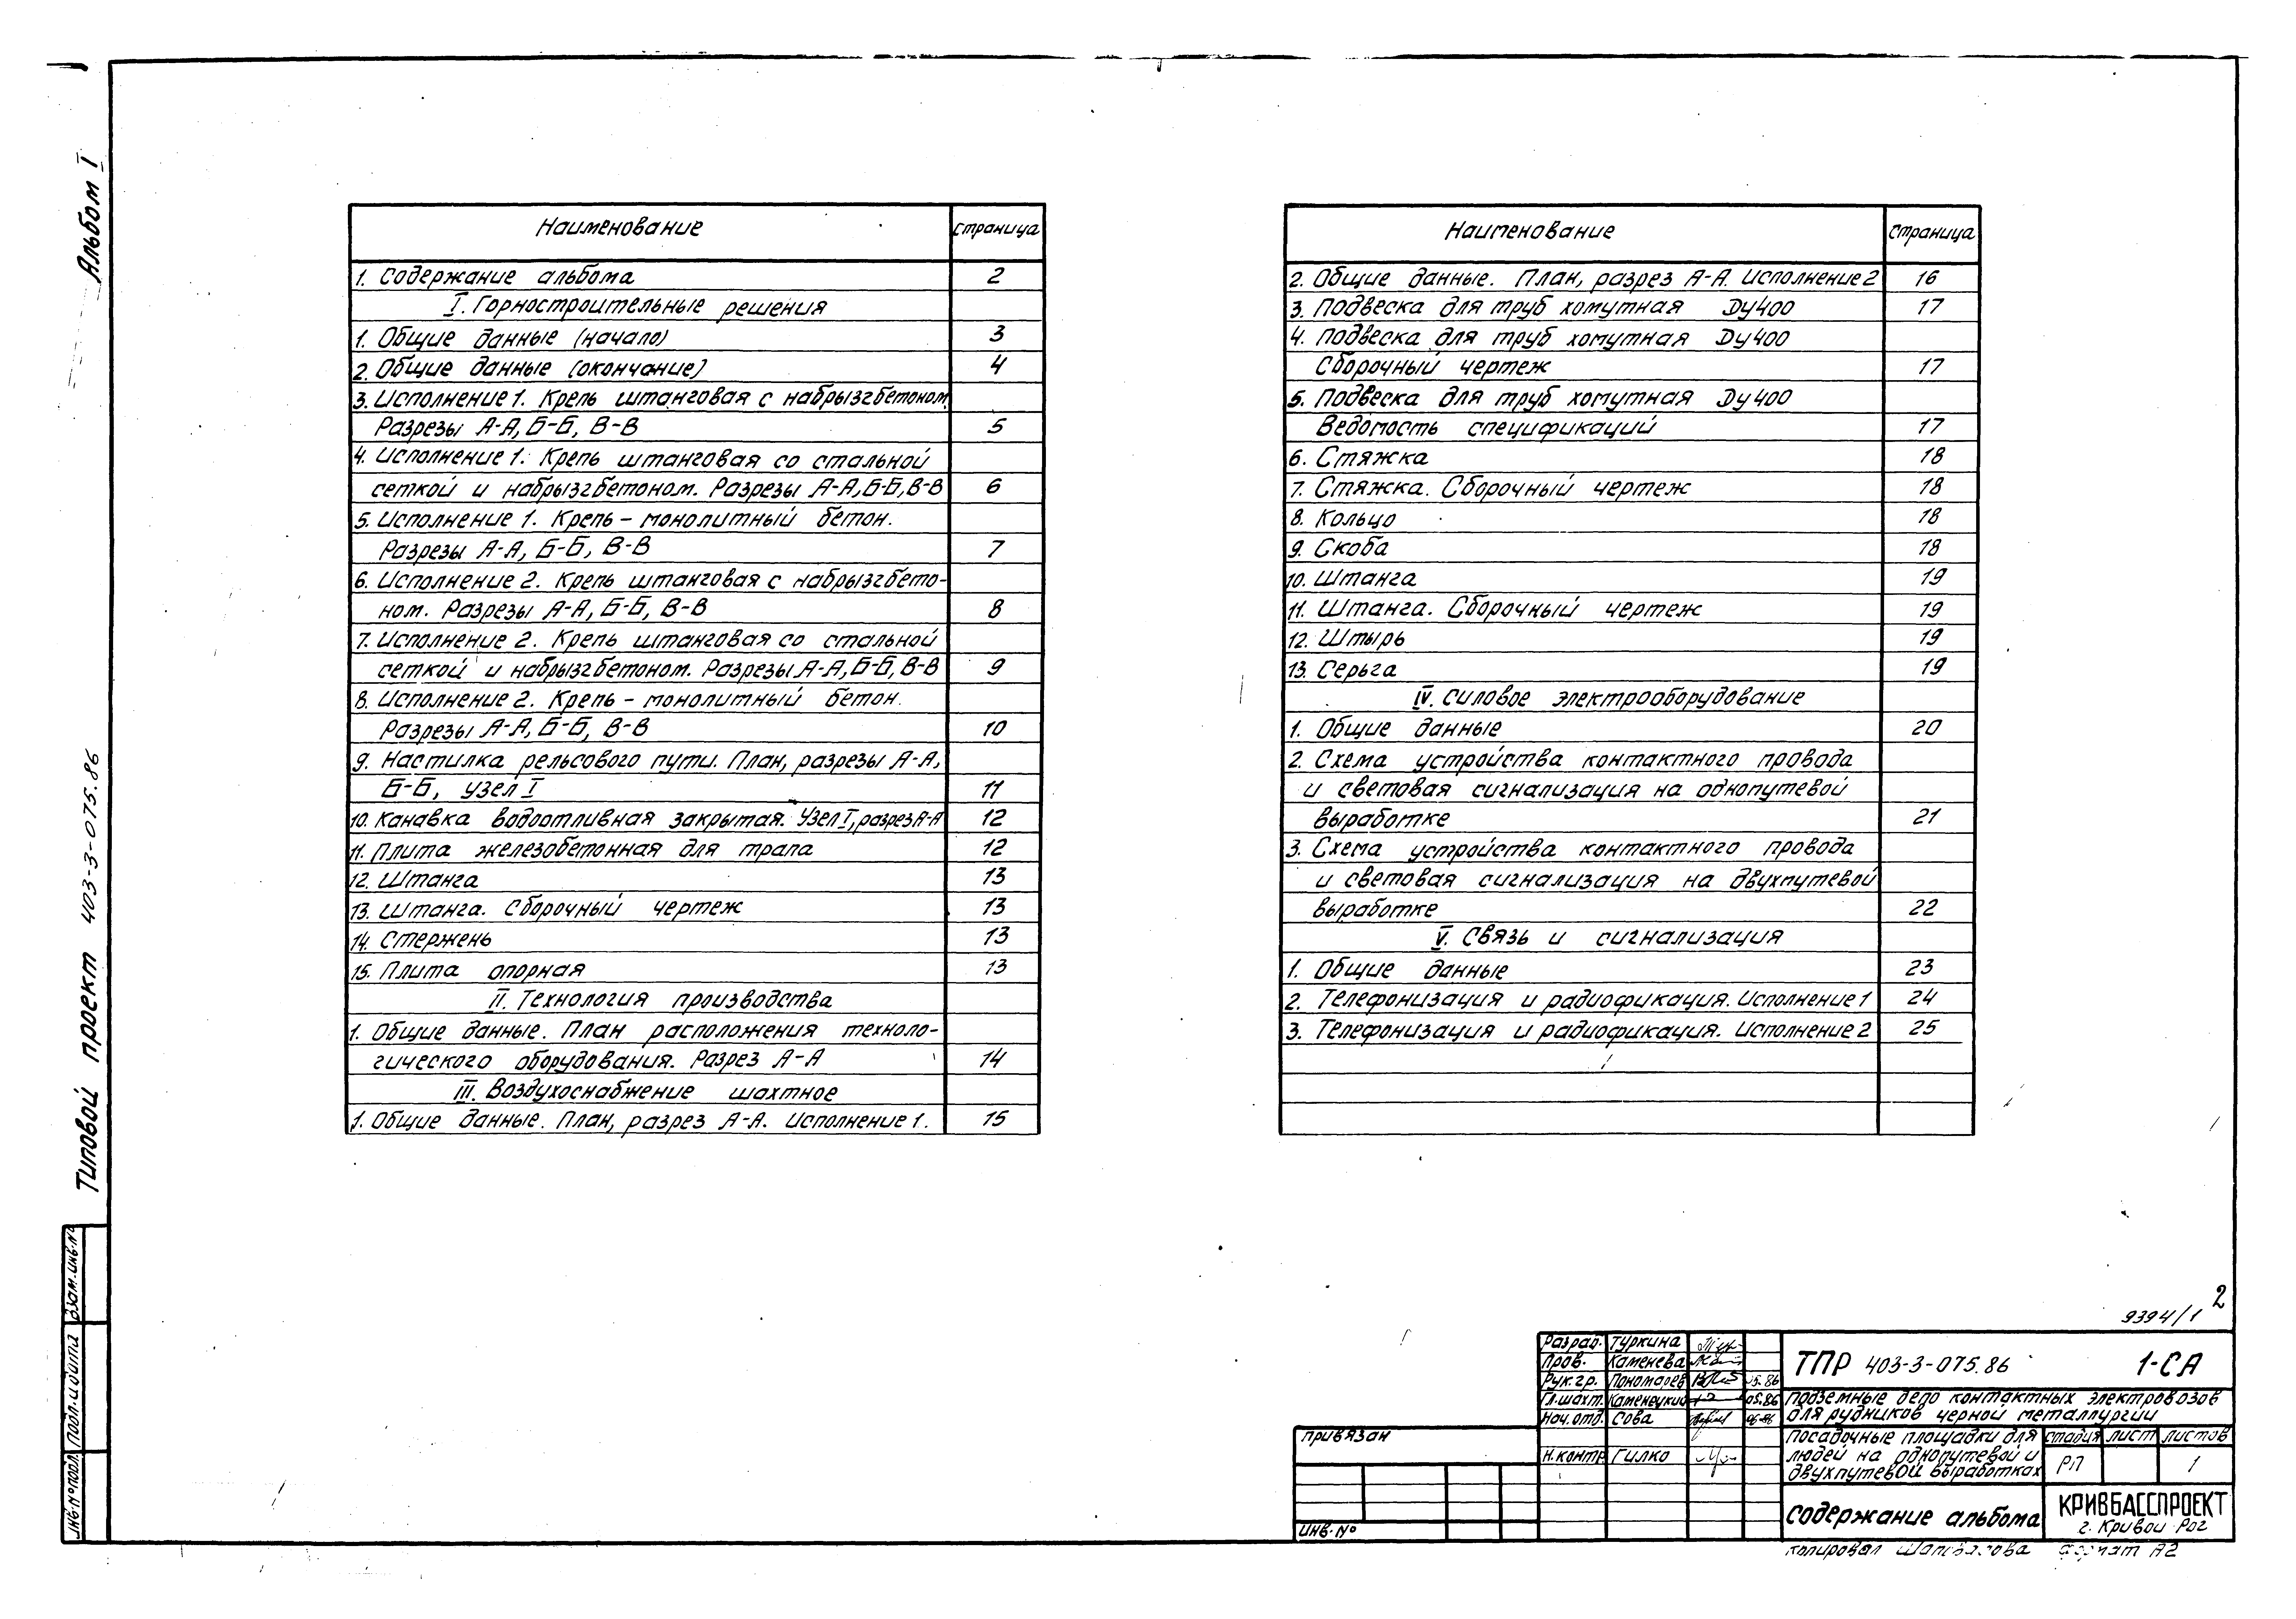 Альбом I
Типовой проект 403-3-075.86
Наименование страница
1. Содержание альбома 2
I. Горностроительные решения
1. Общие данные (начало) 3
2. Общие данные (окончание) 4
3. Исполнение 1. Крепь штанговая с набрызгбетоном.
Разрезы А-А, Б-Б, В-В 5
4. Исполнение 1. Крепь штанговая со стальной
сеткой и набрызгбетоном. Разрезы А-А, Б-Б, В-В 6
5. Исполнение 1. Крепь - монолитный бетон.
Разрезы А-А, Б-Б, В-В 7
6. Исполнение 2. Крепь штанговая с набрызгбето-
ном. Разрезы А-А, Б-Б, В-В 8
7. Исполнение 2. Крепь штанговая со стальной
сеткой и набрызгбетоном. Разрезы А-А, Б-Б, В-В 9
8. Исполнение 2. Крепь - монолитный бетон.
Разрезы А-А, Б-Б, В-В 10
9. Настилка рельсового пути. План, разрезы А-А,
Б-Б, узел I 11
10. Канавка водоотливная закрытая. Узел I, разрез А-А 12
11. Плита железобетонная для трапа 12
12. Штанга 13
13. Штанга. Сборочный чертеж 13
14. Стержень 13
15. Плита опорная 13
II. Технология производства
1. Общие данные. План расположения техноло-
гического оборудования. Разрез А-А 14
III. Воздухоснабжение шахтное
1. Общие данные. План, разрез А-А. Исполнение 1. 15
Наименование страница
2. Общие данные. План, разрез А-А. Исполнение 2 16
3. Подвеска для труб хомутная Ду400 17
4. Подвеска для труб хомутная Ду400
Сборочный чертеж 17
5. Подвеска для труб хомутная Ду400
Ведомость спецификаций 17
6. Стяжка 18
7. Стяжка. Сборочный чертеж 18
8. Кольцо 18
9. Скоба 18
10. Штанга 19
11. Штанга. Сборочный чертеж 19
12. Штырь 19
13. Серьга 19
IV. Силовое электрооборудование
1. Общие данные 20
2. Схема устройства контактного провода
и световая сигнализация на однопутевой
выработке 21
3. Схема устройства контактного провода
и световая сигнализация на двухпутевой
выработке 22
V. Связь и сигнализация
1. Общие данные 23
2. Телефонизация и радиофикация. Исполнение 1 24
3. Телефонизация и радиофикация. Исполнение 2 25
взам. инв. №
подп. и дата
инв. № подл.
2
9394/1
Разраб. Туркина
Пров. Каменева
Рук. гр. Пономарев 05.86
Гл. шахт. Каменецкий 05.86
Нач. отд. Сова 05.86
Н. контр. Гилко
привязан
инв. №
ТПР 403-3-075.86 1-СА
Подземные депо контактных электровозов
для рудников черной металлургии
Посадочные площадки для
людей на однопутевой и
двухпутевой выработках
стадия лист листов
РП 1
Содержание альбома
КРИВБАССПРОЕКТ
г. Кривой Рог
копировал Шаповалова формат А2